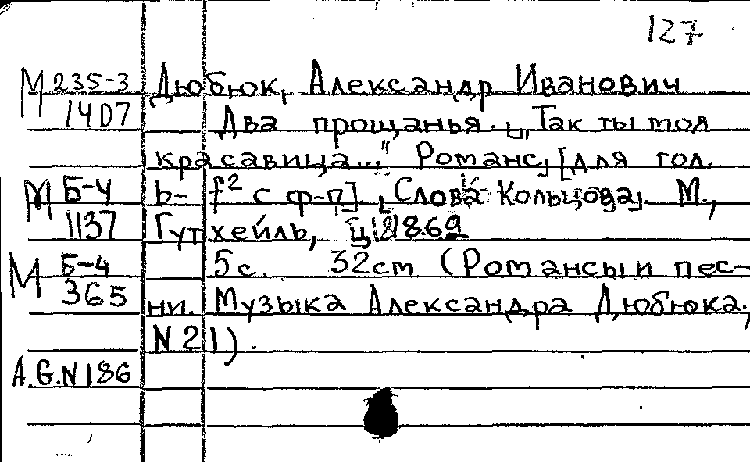 127
М 235-3 Дюбюк, Александр Иванович
1407 Два прощанья. „Так ты моя
красавица..." Романс, [для гол.
М Б-4 b- f² с ф-п]. Слова Кольцова. М.,
1137 Гутхейль, ц. 1869
М Б-4 5с. 32см (Романсы и пес-
365 ни. Музыка Александра Дюбюка,
N 21).
A.G.N 186